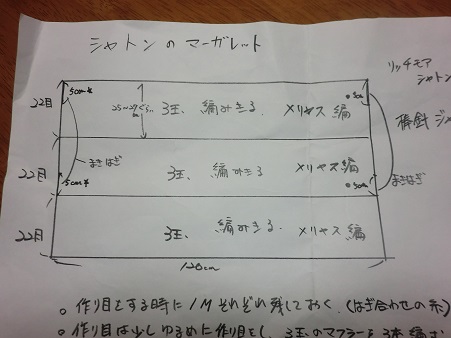 シャトンのマーガレット
リッチモア
シャトン
棒針 ジ
22目
5cm
25~27くらい
3玉、編みきる
メリヤス編
5cm
まきはぎ
22目
5cm
3玉、編みきる
メリヤス編
5cm
まきはぎ
22目
3玉、編みきる.
メリヤス編
120cm
○ 作り目をする時に1Mそれぞれ残しておく.(はぎ合わせの糸)
○ 作り目は少しゆるめに作り目をし、3玉のマフラーを3本編む